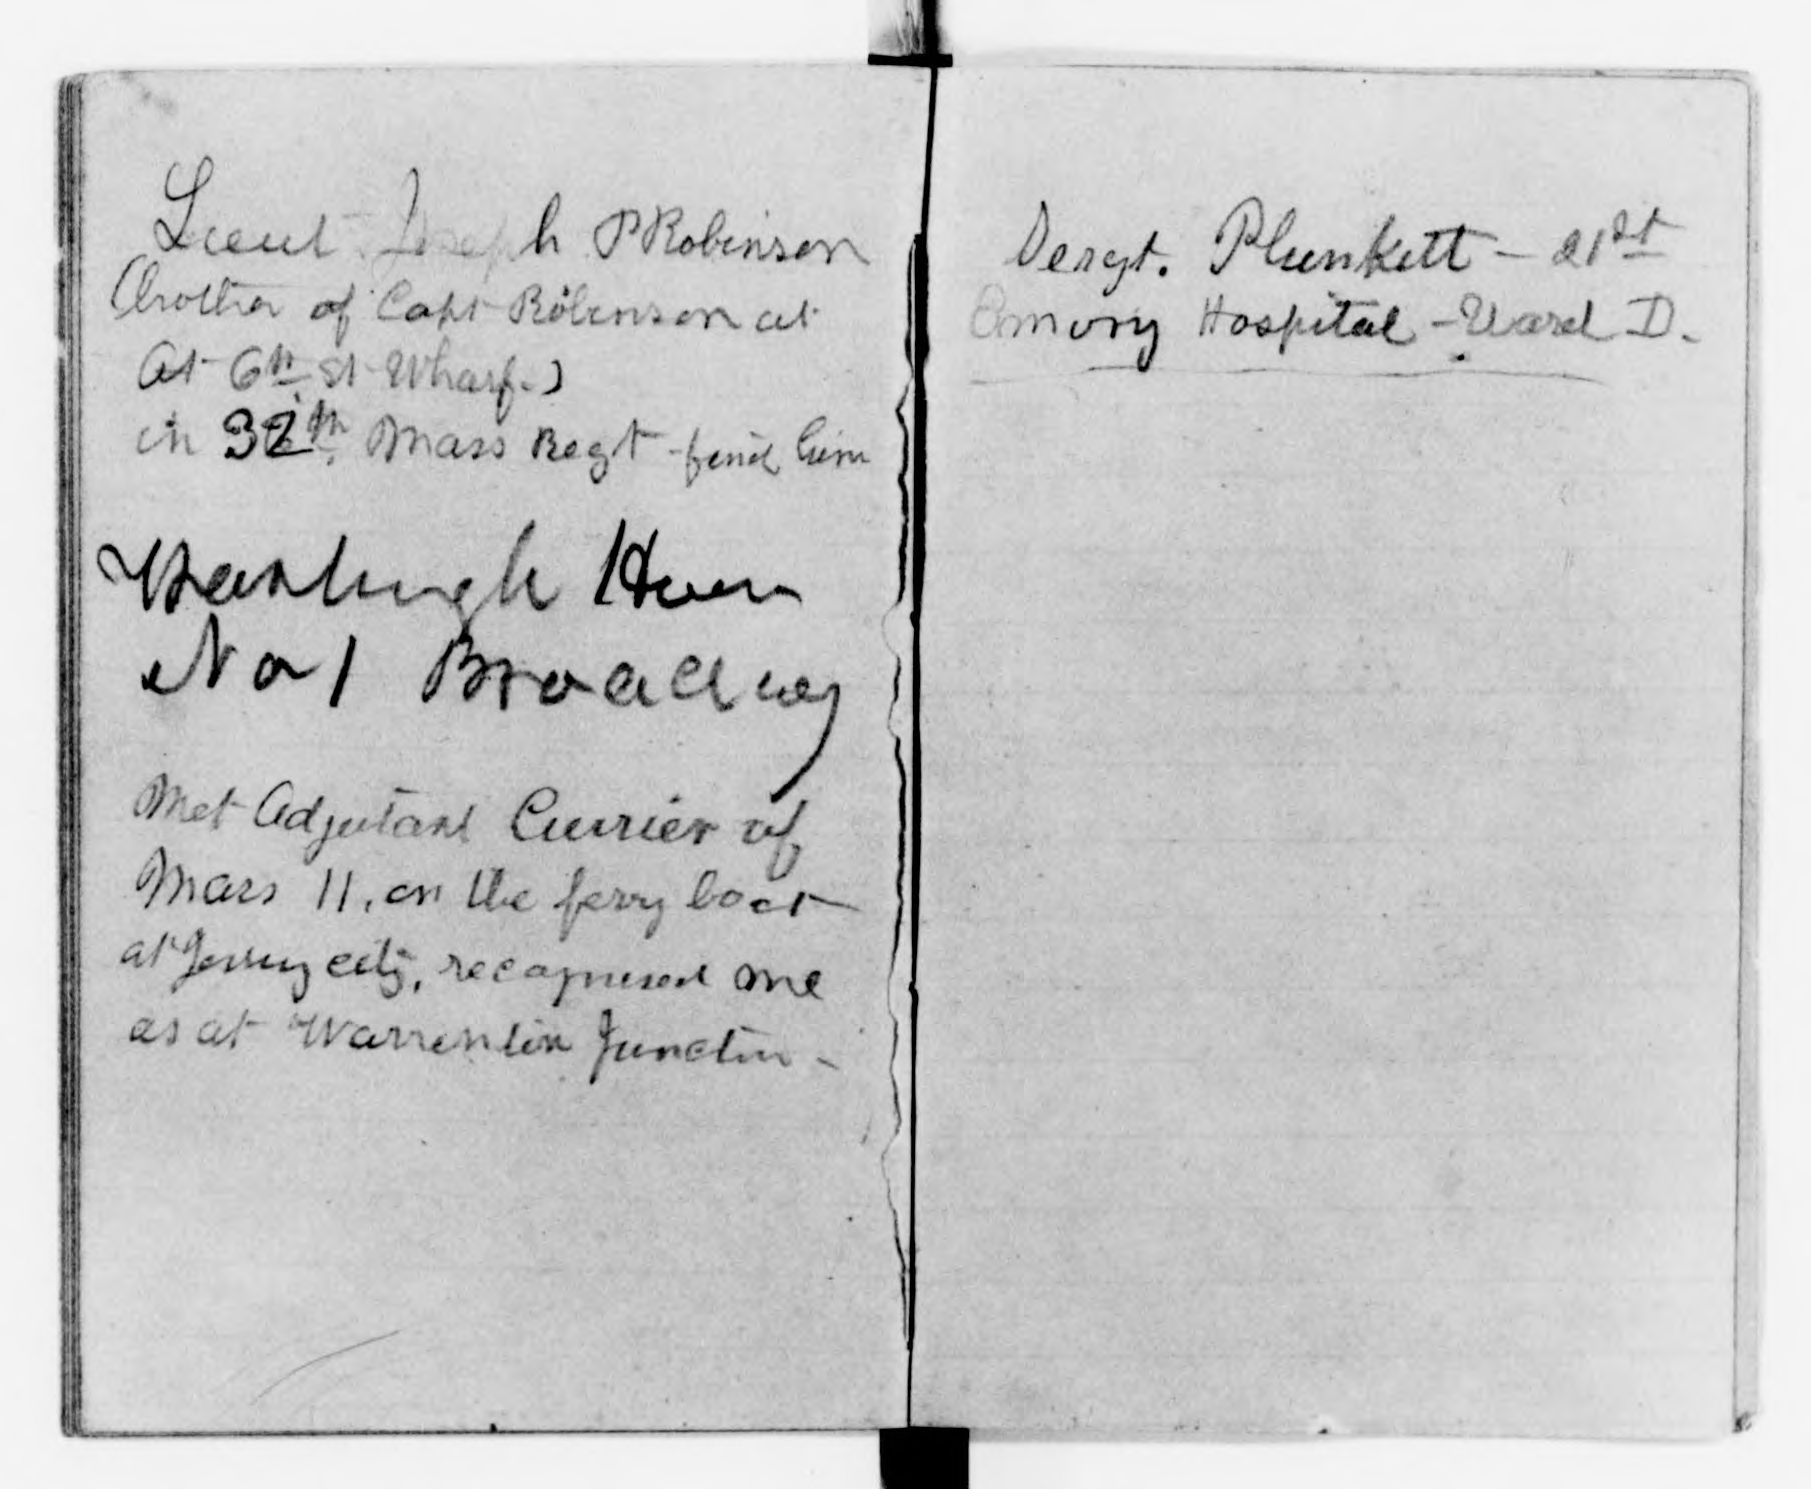 Lieut. Joseph P Robinson
(brother of Capt Robinson at
at 6th St Wharf.)
in 32th Mass Regt - find him
No 1 Broadway
Met Adjutant Currier of
Mass 11, on the ferry boat
at Jersey city, recognised me
as at Warrenton Junction -
Sergt. Plunkett - 21st
Armory Hospital - Ward D.